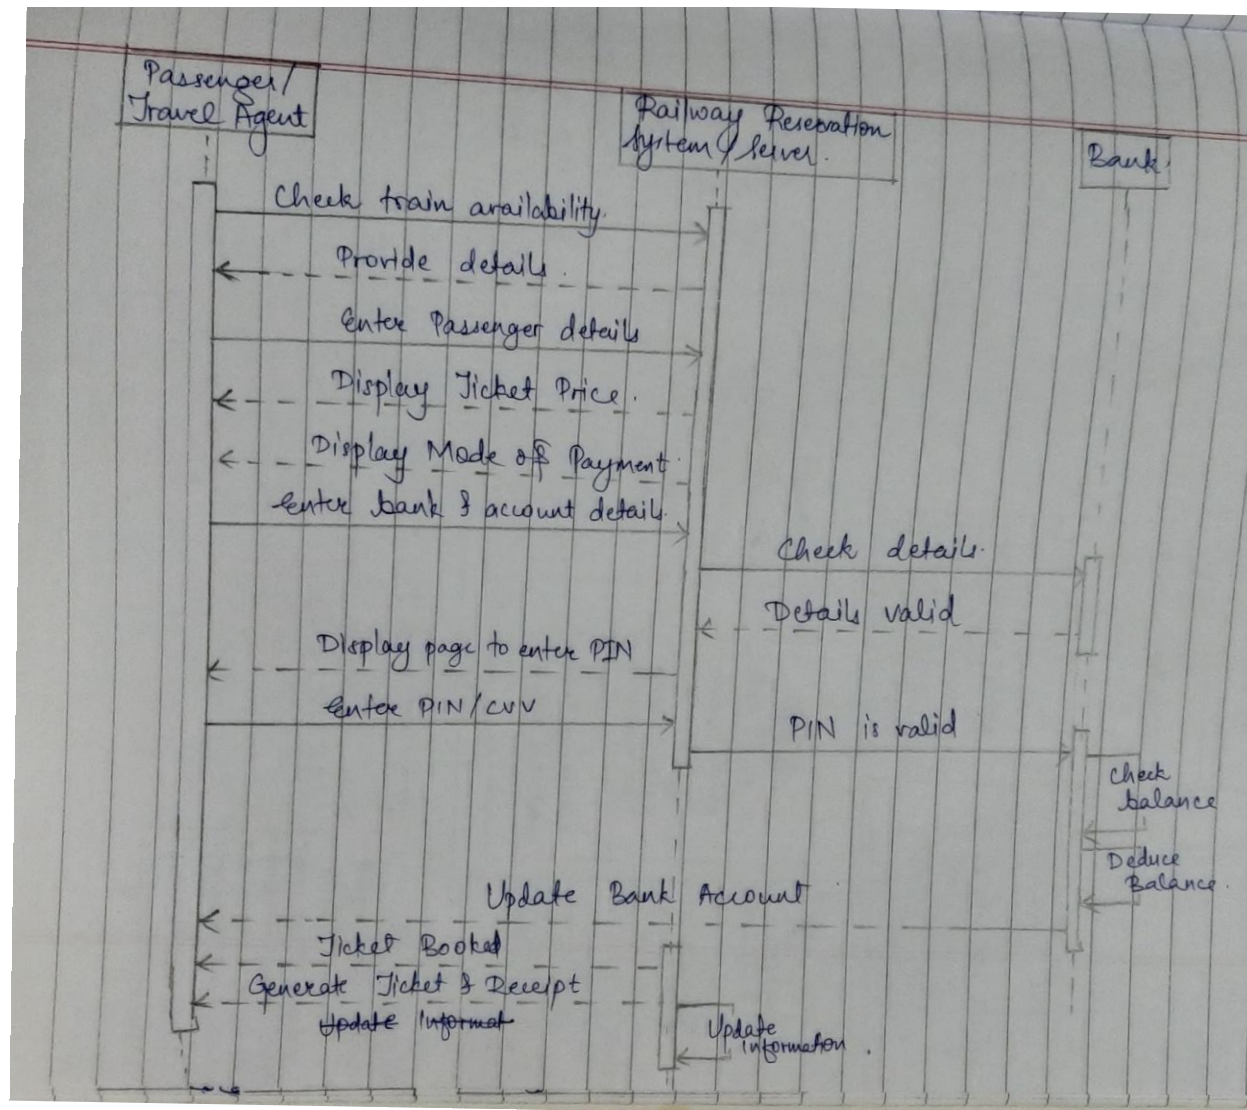 Passenger/
Travel Agent
Railway Reservation
System / Server.
Bank.
Check train availability.
Provide details.
Enter Passenger details
Display Ticket Price.
Display Mode of Payment.
Enter bank & account details.
Check details.
Details valid
Display page to enter PIN
Enter PIN/CVV
PIN is valid
Check
balance
Deduce
Balance.
Update Bank Account
Ticket Booked
Generate Ticket & Receipt
Update Informat
Update
information.